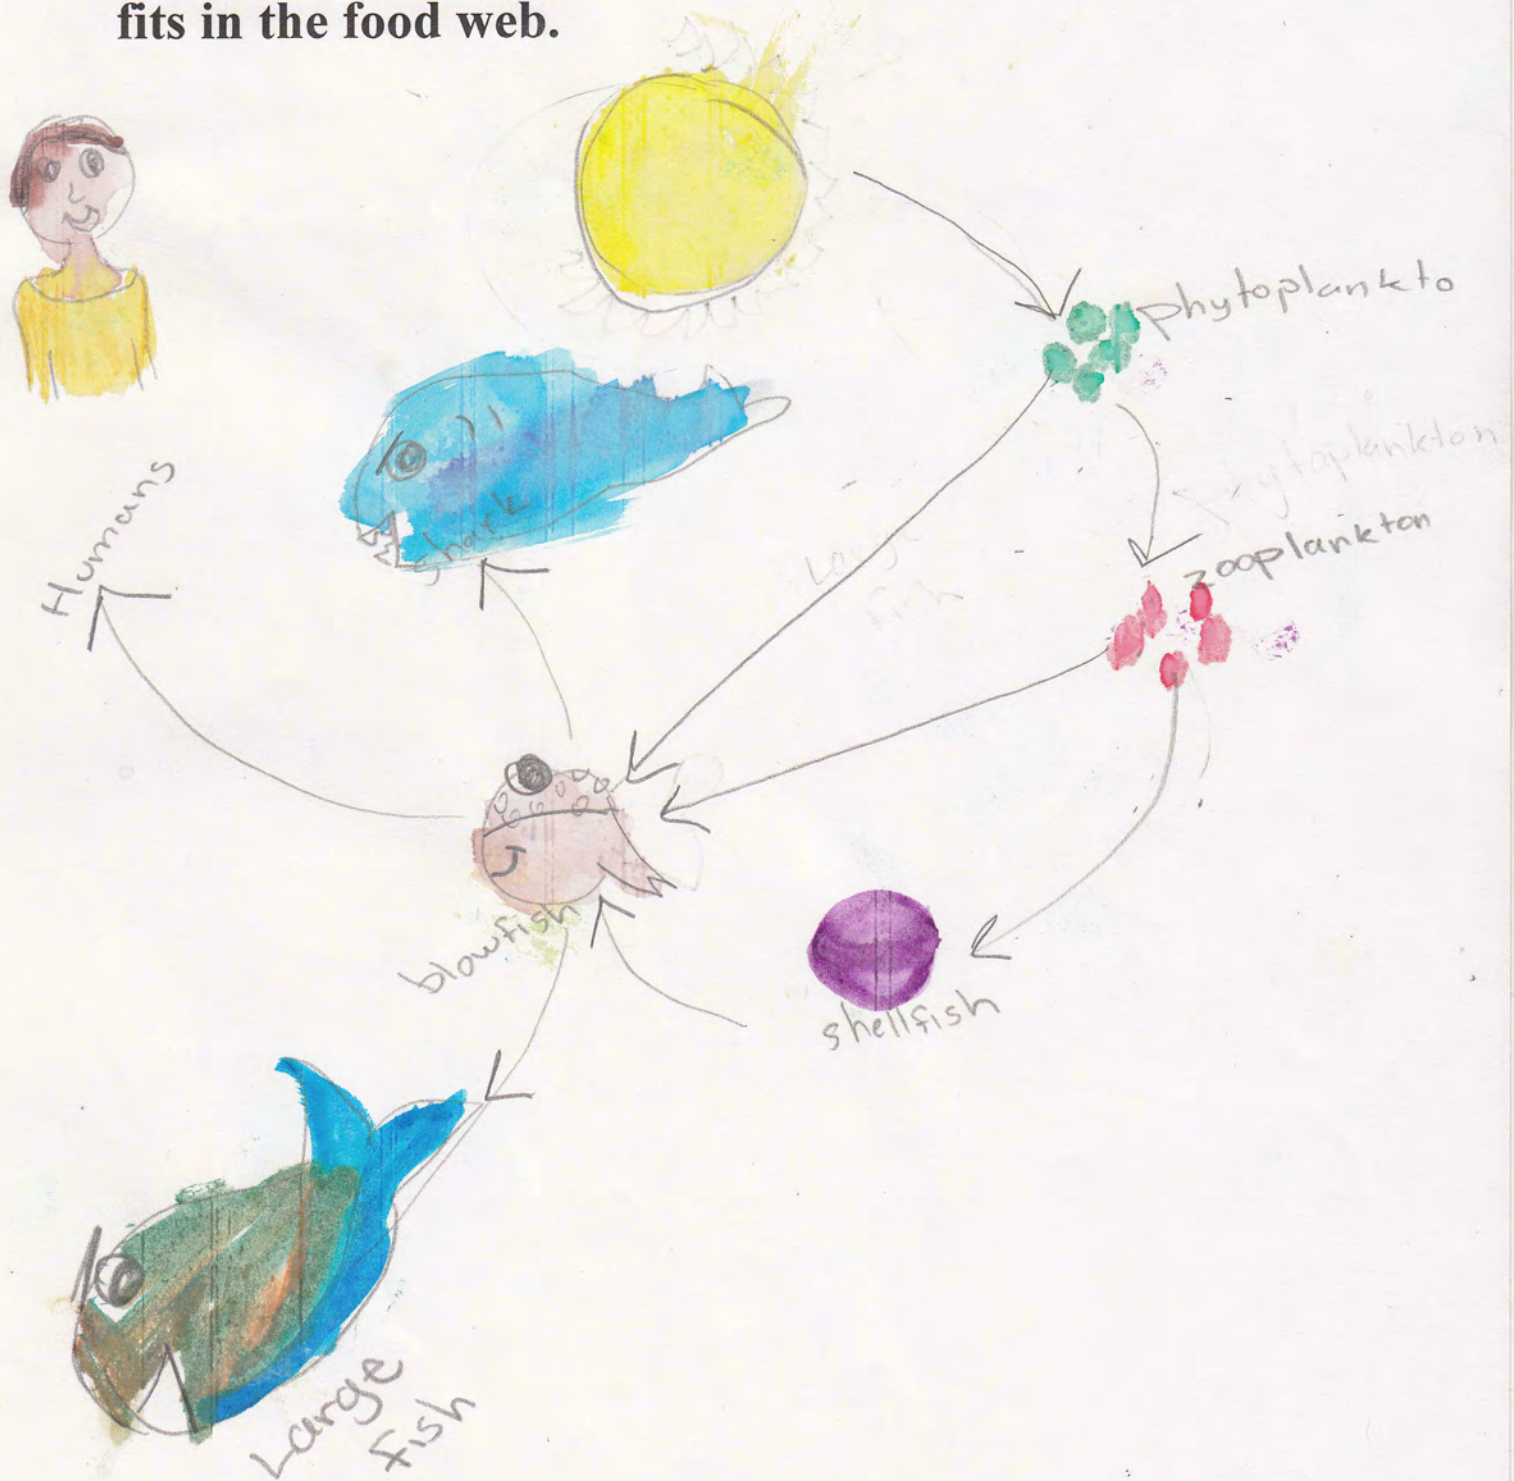 fits in the food web.
phytoplankto
phytoplankton
zooplankton
Humans
shark
Large
fish
blowfish
shellfish
Large
fish